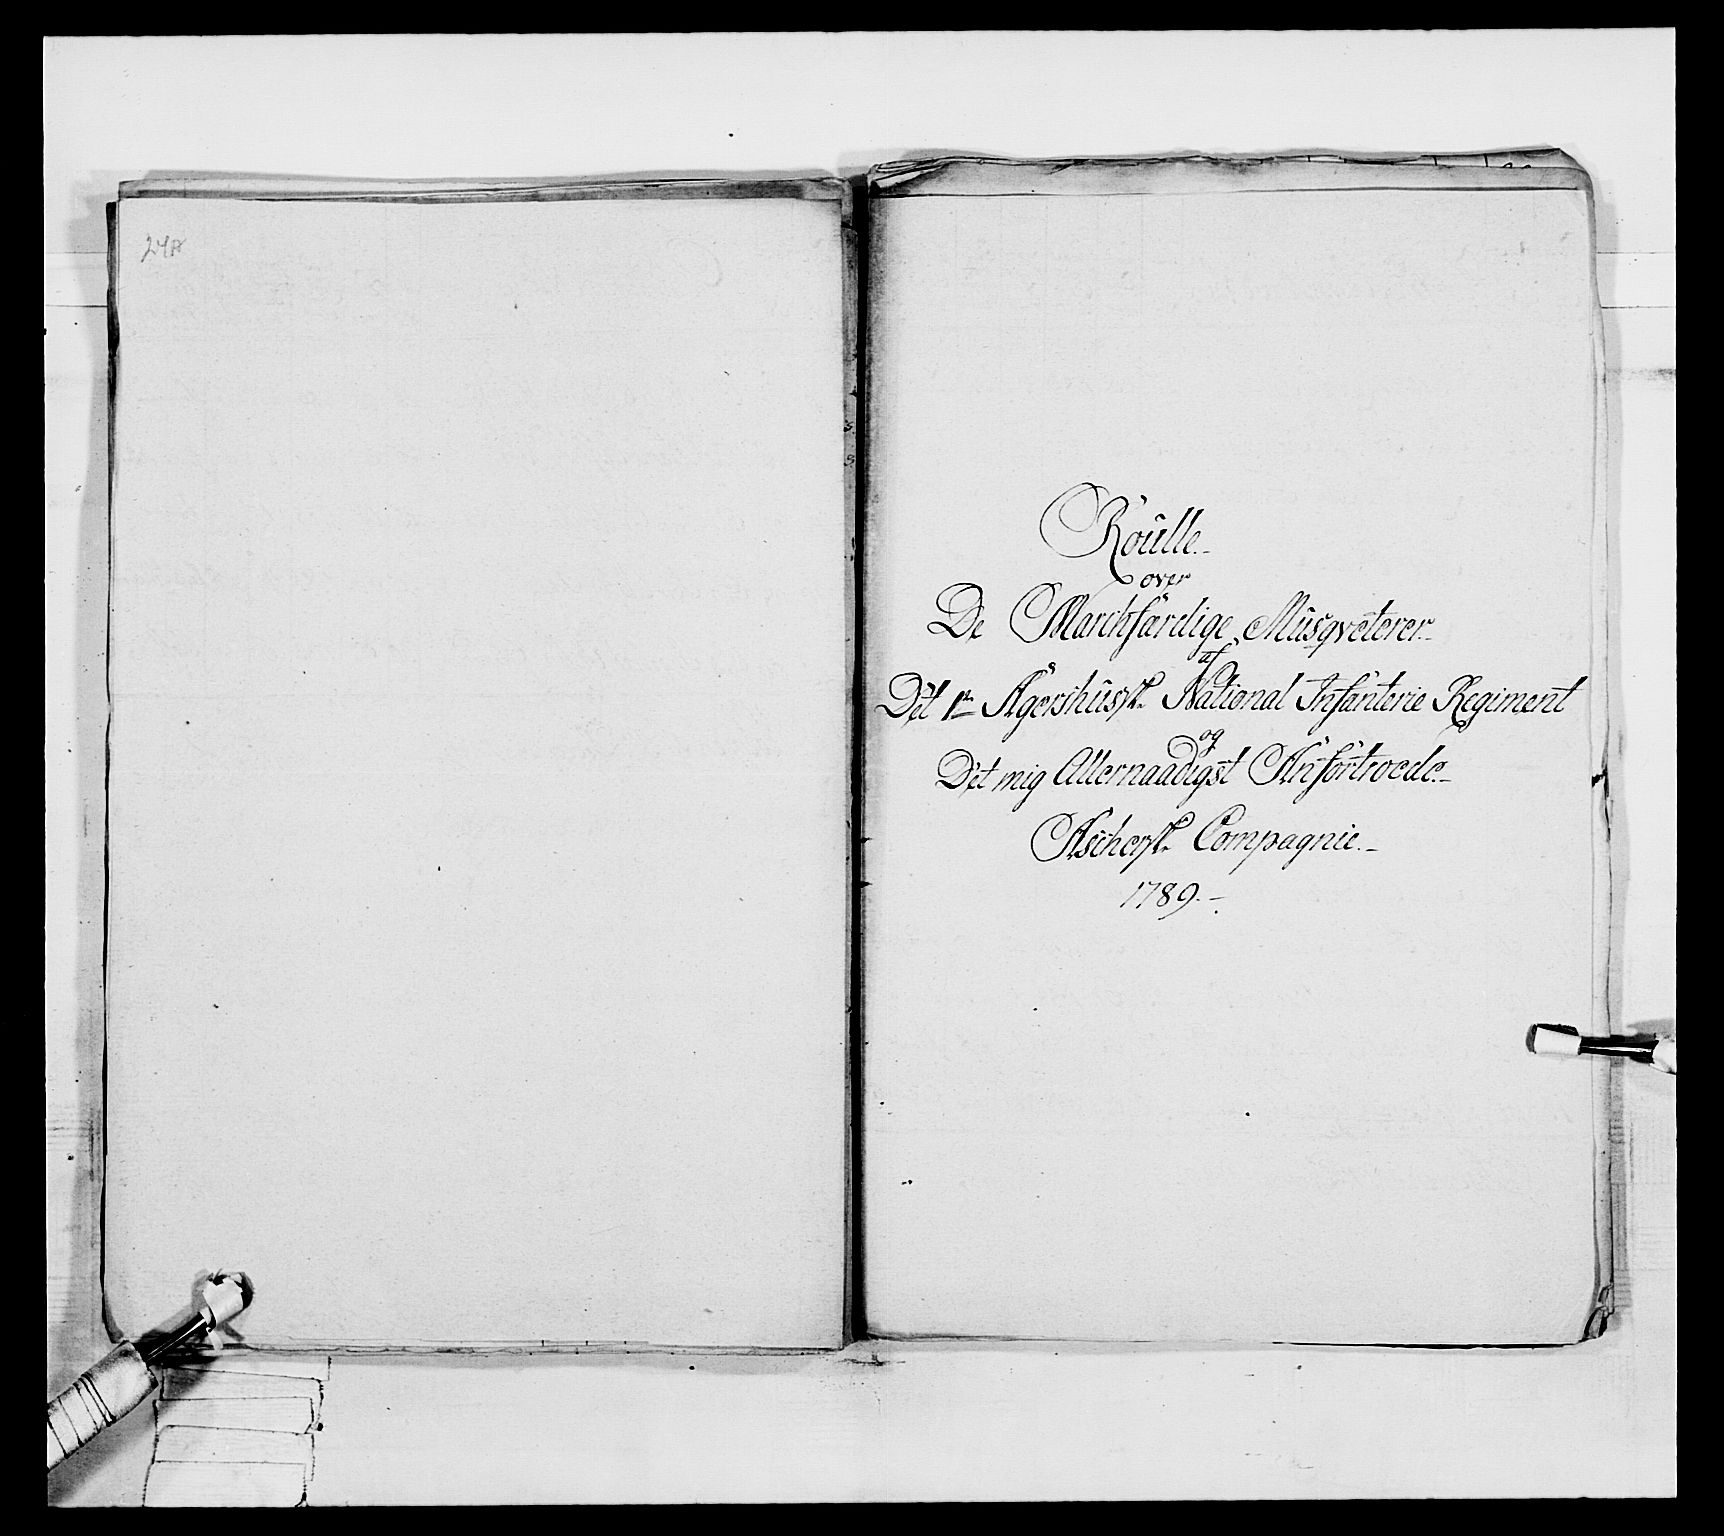 24A
Roülle.
over
De Marchfärdige Müsqveterer.
af
Det 1te Agershüsske National Infanterie Regiment
og
Det mig Allernaadigst Anfortroede.
Ascherske Compagnie.
1789.